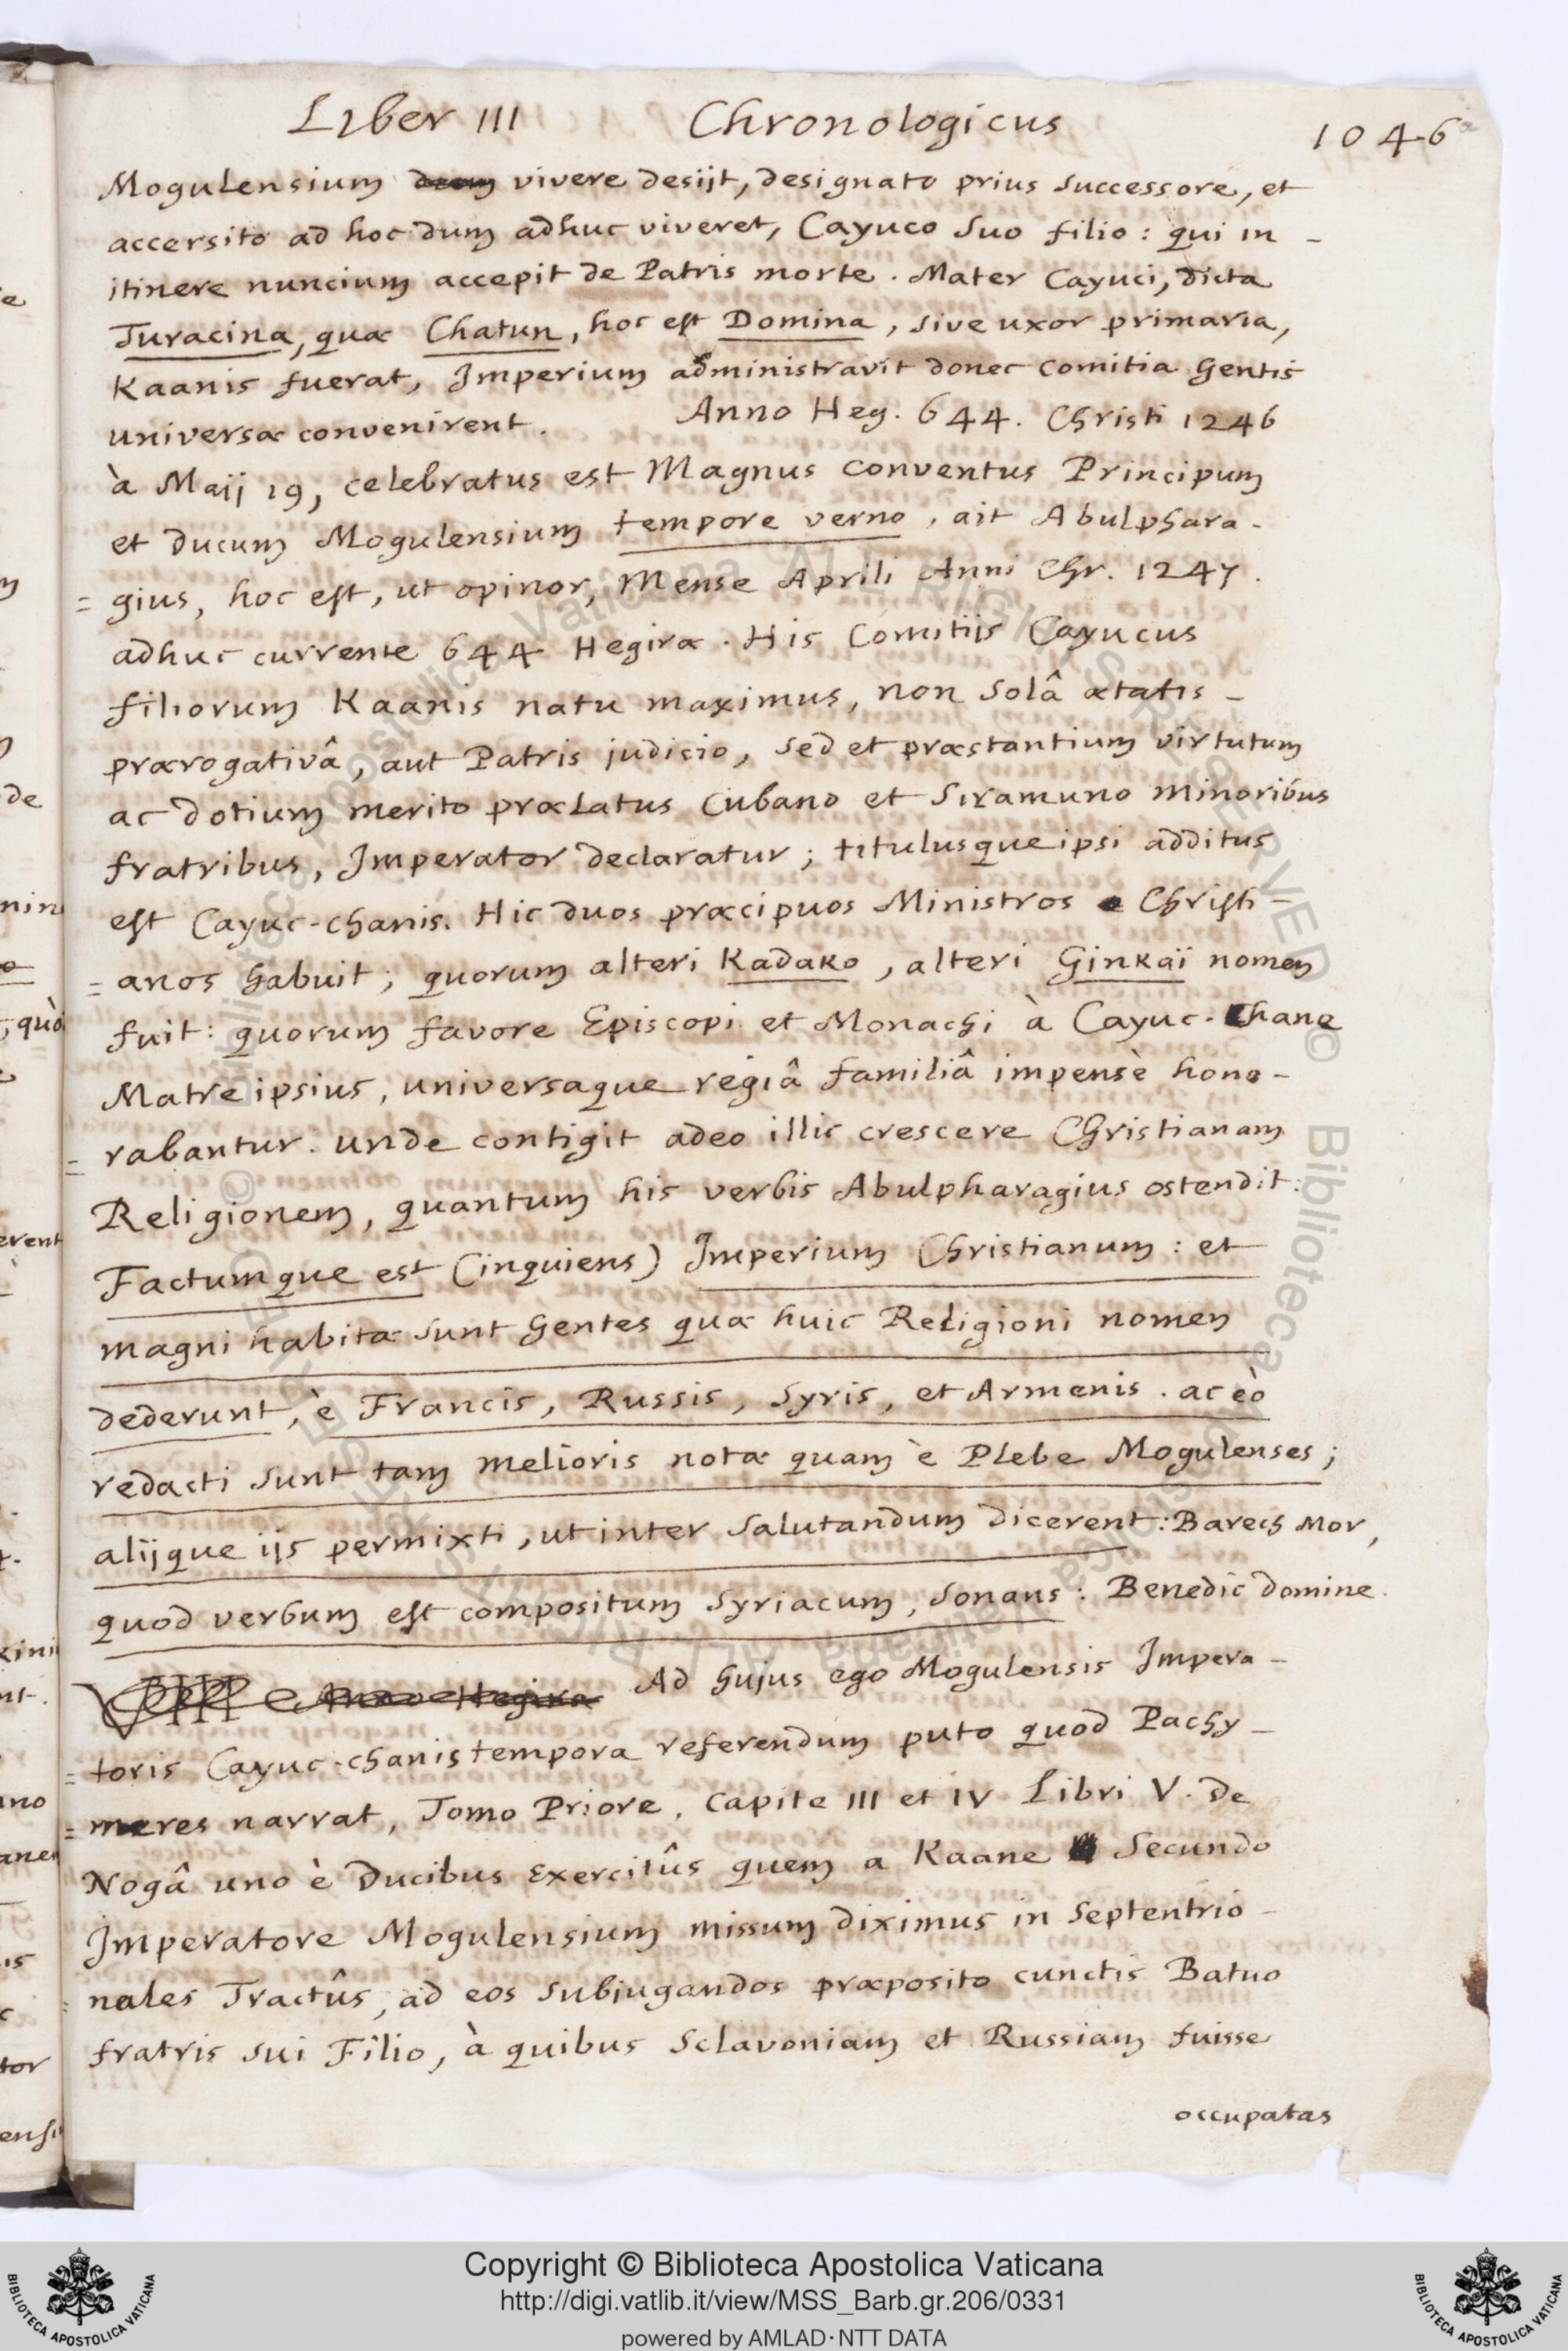 Liber III Chronologicus 1046
Mogulensium vivere desijt, designato prius successore, et
accersito ad hoc dum adhuc viveret, Cayuco suo filio: qui in -
itinere nuncium accepit de Patris morte. Mater Cayuci, dicta
Turacina, quæ Chatun, hoc est Domina, sive uxor primaria,
Kaanis fuerat, Imperium administravit donec comitia Gentis
universæ convenirent. Anno Heg. 644. Christi 1246
à Maij 19, celebratus est Magnus conventus Principum
et Ducum Mogulensium tempore verno, ait Abulphara-
= gius, hoc est, ut opinor, Mense Aprili Anni Chr. 1247.
adhuc currente 644 Hegiræ. His Comitijs Cayucus
filiorum Kaanis natu maximus, non solâ ætatis -
prærogativâ, aut Patris judicio, sed et præstantium virtutum
ac dotium merito prælatus Cubano et Siramuno minoribus
fratribus, Imperator declaratur; titulusque ipsi additus
est Cayuc-chanis. Hic duos præcipuos Ministros Christi=
= anos habuit; quorum alteri Kadako, alteri Ginkaï nomen
fuit: quorum favore Episcopi et Monachi à Cayuc-Chane
Matre ipsius, universaque regiâ familiâ impensè hono-
= rabantur. unde contigit adeo illic crescere Christianam
Religionem, quantum his verbis Abulpharagius ostendit:
Factumque est (inquiens) Imperium Christianum: et
magni habitæ sunt Gentes quæ huic Religioni nomen
dederunt, è Francis, Russis, Syris, et Armenis. ac eò
redacti sunt tam melioris notæ quam è Plebe Mogulenses;
alijque ijs permixti, ut inter salutandum dicerent: Barech Mor,
quod verbum est compositum Syriacum, sonans: Benedic domine.
Anno Hegiræ Ad hujus ego Mogulensis Impera-
= toris Cayuc-chanis tempora referendum puto quod Pachy-
= meres narrat, Tomo Priore, Capite III et IV Libri V. de
Nogâ uno è Ducibus Exercitûs quem a Kaane Secundo
Imperatore Mogulensium missum diximus in Septentrio-
nales Tractûs, ad eos subjugandos præposito cunctis Batuo
fratris sui Filio, à quibus Sclavoniam et Russiam fuisse
occupatas
Copyright © Biblioteca Apostolica Vaticana
http://digi.vatlib.it/view/MSS_Barb.gr.206/0331
powered by AMLAD·NTT DATA
BIBLIOTECA APOSTOLICA VATICANA
BIBLIOTECA APOSTOLICA VATICANA